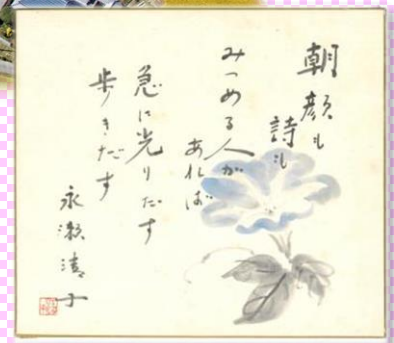 朝顔も
詩も
みつめる人が
あれば
急に光りだす
歩きだす
永瀬清子